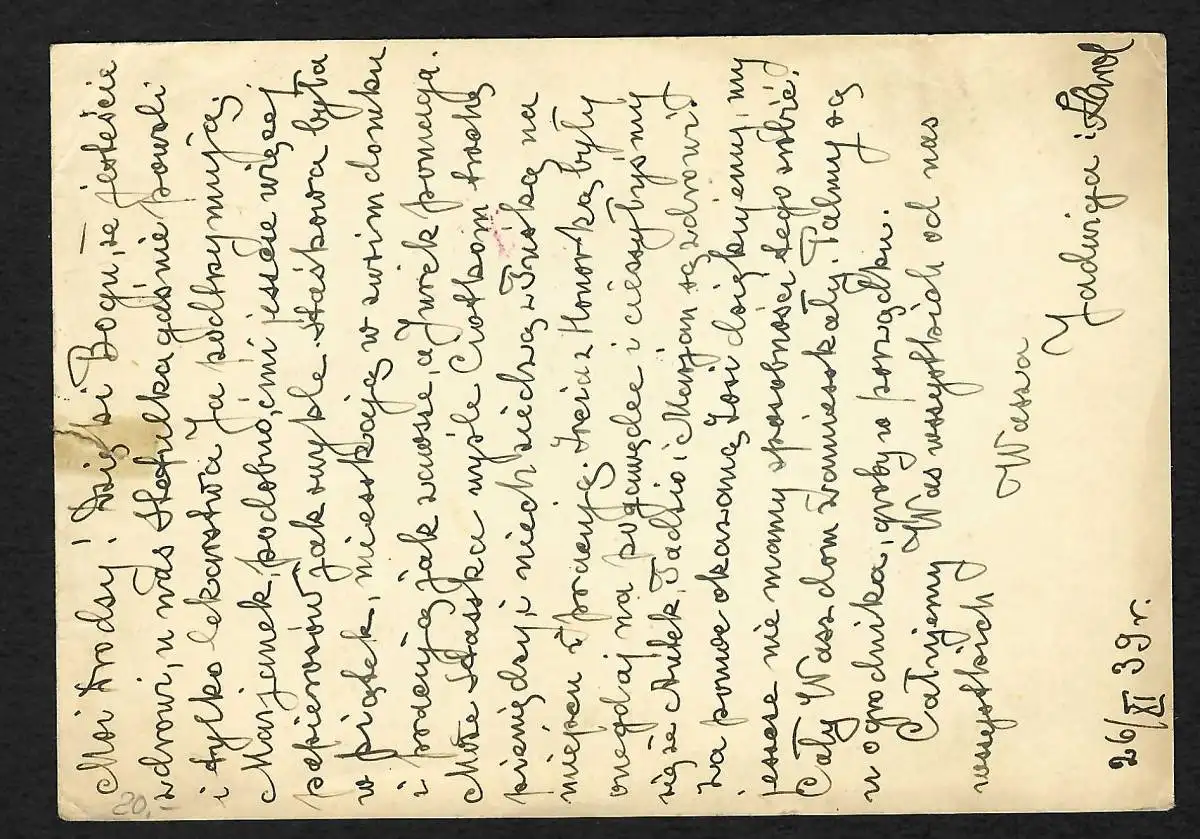 Moi Drodzy! Dzięki Bogu, że jesteście
zdrowi, u nas Stefulka gaśnie powoli
i tylko lekarstwa Ją podtrzymują,
Marjanek, podobno, ćmi jeszcze więcej
papierosów jak zwykle. Staśkowa była
w piątek, mieszkają w swim domku
i pracują jak zawsze, a Jurek pomaga.
Może Staszka wyśle Ciotkom trochę
pieniędzy, i niech siedzą z na
miejscu i pracują. Irena z Honorką były
onegdaj na pogawędce i cieszyłyśmy
się że Antek, Tadzio i Marjan są zdrowi.
Za pomoc okazaną Zosi dziękujemy, my
jeszcze nie mamy sposobności tego zrobić.
Cały Wasz dom zamieszkały. Palmy są
u ogrodnika, groby w porządku.
Całujemy Was wszystkich od nas
wszystkich Wasza
Jadwiga i Karol
26/XI 39 r.
20.-